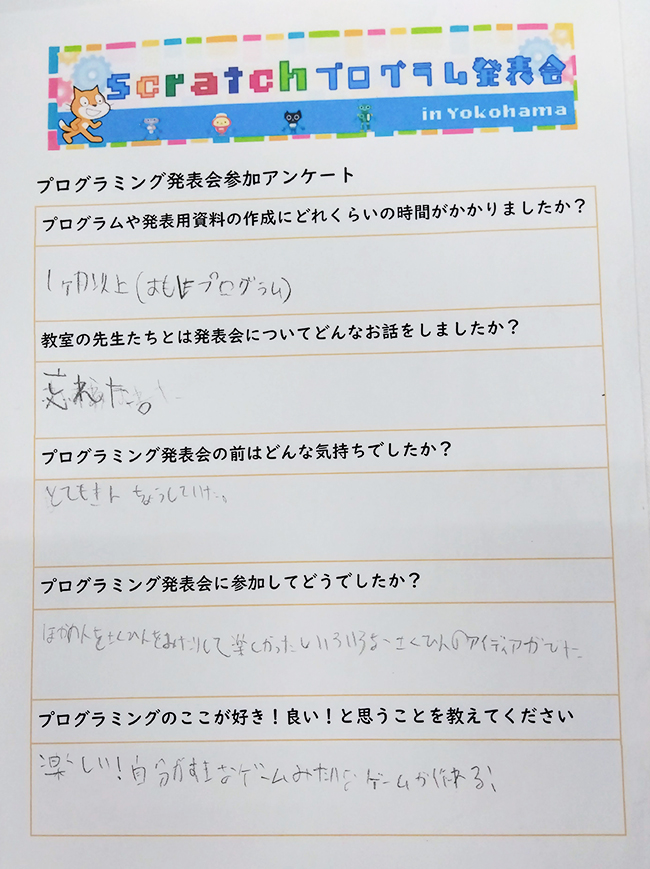 Scratchプログラム発表会
in Yokohama
プログラミング発表会参加アンケート
プログラムや発表用資料の作成にどれくらいの時間がかかりましたか？
1ヶ月以上(おもにプログラム)
教室の先生たちとは発表会についてどんなお話をしましたか？
忘れた。
プログラミング発表会の前はどんな気持ちでしたか？
とてもきんちょうしていた。
プログラミング発表会に参加してどうでしたか？
ほかの人をさくひんをみたりして楽しかったしいろいろなさくひんのアイディアがでた
プログラミングのここが好き！良い！と思うことを教えてください
楽しい！自分がすきなゲームみたいなゲームが作れる！